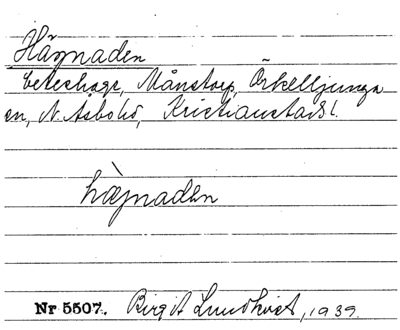 Hägnaden
beteshage, Månstorp, Örkelljunga
sn, N. Åsbo hd, Kristianstads l.
hägnaden
Nr 5507. Birgit Lundkvist, 1939.